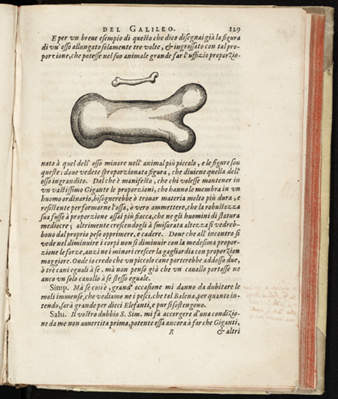 DEL GALILEO. 129
E per vn breue esempio di questo che dico disegnai già la figura
di vn'osso allungato solamente tre volte, & ingrossato con tal pro-
porzione, che potesse nel suo animale grande far l'uffizio proporzio-
nato à quel dell'osso minore nell'animal più piccolo, e le figure son
queste: doue vedete sproporzionata figura, che diuiene quella dell'
osso ingrandito. Dal che è manifesto, che chi volesse mantener in
vn vastissimo Gigante le proporzioni, che hanno le membra in vn
huomo ordinario, bisognerebbe ò trouar materia molto più dura, e
resistente per formarne l'ossa, ò vero ammettere, che la robustezza
sua fusse à proporzione assai più fiacca, che ne gli huomini di statura
mediocre; altrimente crescendogli à smisurata altezza si vedreb-
bono dal proprio peso opprimere, e cadere. Doue che all'incontro si
vede nel diminuire i corpi non si diminuir con la medesima propor-
zione le forze, anzi ne i minori crescer la gagliardia con proporzion
maggiore. Onde io credo che vn piccolo cane porterebbe addosso due,
ò tre cani eguali à se, mà non penso già che vn cauallo portasse ne
anco vn solo cauallo à se stesso eguale.
Simp. Mà se così è, grand' occasione mi danno da dubitare le
moli immense, che vediamo ne i pesci, che tal Balena, per quanto in-
tendo, sarà grande per dieci Elefanti, e pur si sostengono.
Salu. Il vostro dubbio S. Sim. mi fà accorgere d'una condizio-
ne da me non auuertita prima, potente essa ancora à far che Giganti,
R & altri